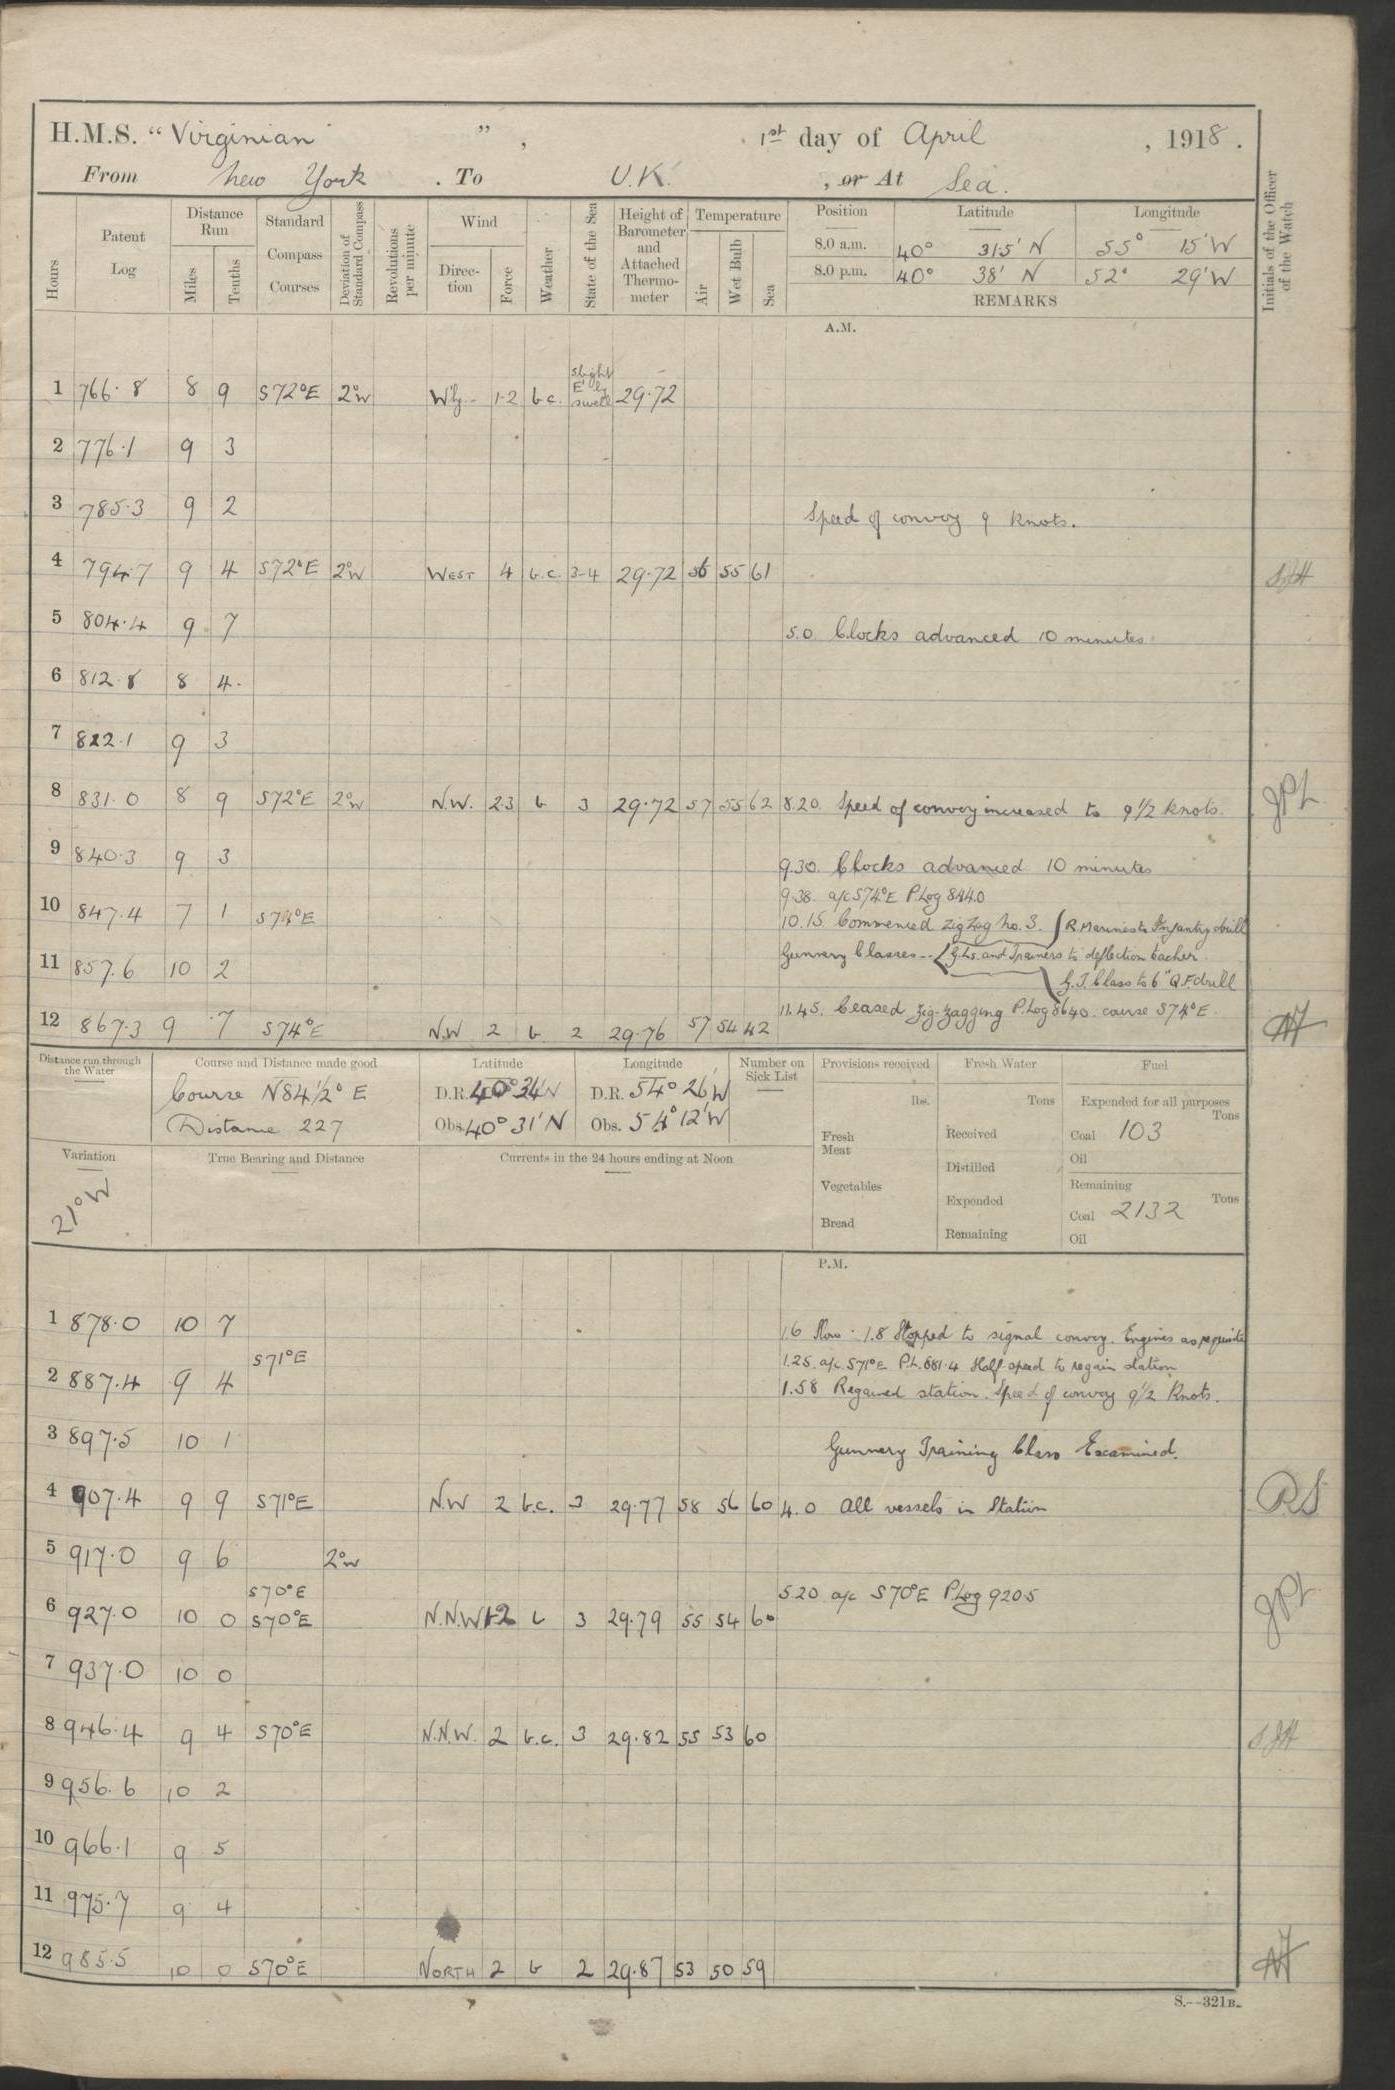 H.M.S. "Virginian", 1st day of April, 1918.
From New York. To U.K., or At Sea.
Hours Patent Log Distance Run Miles Tenths Standard Compass Courses Deviation of Standard Compass Revolutions per minute Wind Direction Force Weather State of the Sea Height of Barometer and Attached Thermometer Temperature Air Wet Bulb Sea Initials of the Officer of the Watch
Position Latitude Longitude
8.0 a.m. 40° 31.5' N 55° 15' W
8.0 p.m. 40° 38' N 52° 29' W
REMARKS
A.M.
1 766.8 8 9 S72°E 2°W W'ly 1-2 b.c. Slight E'ly swell 29.72
2 776.1 9 3
3 785.3 9 2 Speed of convoy 9 knots.
4 794.7 9 4 S72°E 2°W WEST 4 b.c. 3-4 29.72 56 55 61
5 804.4 9 7 5.0 Clocks advanced 10 minutes.
6 812.8 8 4
7 822.1 9 3
8 831.0 8 9 S72°E 2°W N.W. 2.3 b 3 29.72 57 55 62 8.20. Speed of convoy increased to 9 1/2 knots. JPL
9 840.3 9 3 9.30. Clocks advanced 10 minutes
9.38. a/c S74°E P.Log 844.0
10 847.4 7 1 S74°E 10.15. Commenced zig zag No. 3. R. Marines to Infantry drill
Gunnery Classes -- G.Ls. and Trainers to deflection teacher.
11 857.6 10 2 G.T. Class to 6" Q.F. drill
11.45. Ceased zig-zagging P.Log 864.0. course S74°E.
12 867.3 9 7 S74°E N.W 2 b 2 29.76 57 54 42
Distance run through the Water Course and Distance made good Latitude Longitude Number on Sick List Provisions received Fresh Water Fuel
Course N84 1/2° E D.R. 40° 34' N D.R. 54° 26' W lbs. Tons Expended for all purposes Tons
Distance 227 Obs. 40° 31' N Obs. 54° 12' W Fresh Meat Received Coal 103
Variation True Bearing and Distance Currents in the 24 hours ending at Noon Distilled Oil
21° W Vegetables Expended Remaining Coal 2132 Tons
Bread Remaining Oil
P.M.
1 878.0 10 7 1.6 Slow. 1.8 Stopped to signal convoy. Engines as requisite
S71°E 1.25. a/c. S71°E P.L. 881.4 Half speed to regain station
2 887.4 9 4 1.58 Regained station. Speed of convoy 9 1/2 Knots.
3 897.5 10 1 Gunnery Training Class Examined.
4 907.4 9 9 S71°E N.W 2 b.c. 3 29.77 58 56 60 4.0 All vessels in Station RS
5 917.0 9 6 2°W
S70°E 5.20 a/c S70°E P.Log 920.5
6 927.0 10 0 S70°E N.N.W 1-2 b 3 29.79 55 54 60 JPL
7 937.0 10 0
8 946.4 9 4 S70°E N.N.W. 2 b.c. 3 29.82 55 53 60
9 956.6 10 2
10 966.1 9 5
11 975.7 9 4
12 985.5 10 0 S70°E NORTH 2 b 2 29.87 53 50 59
S.--321B.